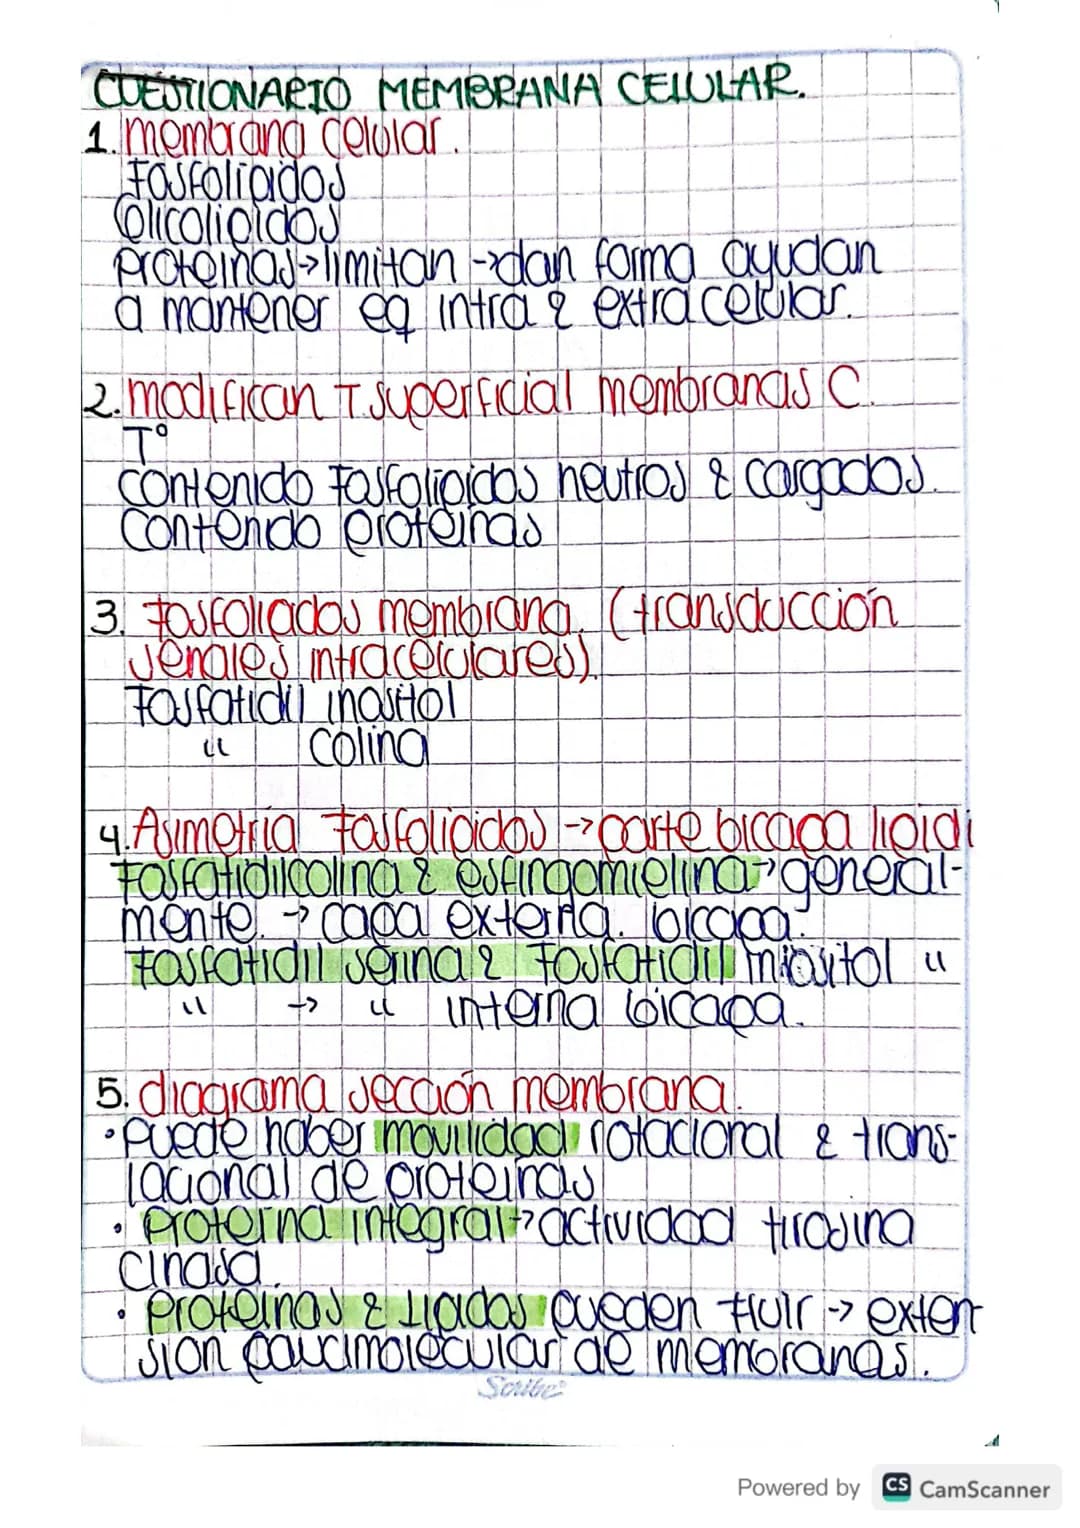 CUESTIONARIO MEMBRANA CELULAR.
1. membrana celular.
Fosfolípidos
Glicolipidos
proteínas→limitan →dan forma ayudan
a mantener eq intra & extracelular.
2. modifican T superficial membranas C.
T°
contenido Fosfolípidos neutros & cargados.
Contenido proteínas
3. Fosfolípidos membrana. (transducción
señales intracelulares).
Fosfatidil inositol
" colina
4. Asimetría Fosfolípidos → parte bicapa lípidi
Fosfatidilcolina & esfingomielina→general-
mente. → capa externa. bicapa.
Fosfatidil serina & Fosfatidil iniositol "
" → " interna bicapa.
5. diagrama sección membrana.
• Puede haber movilidad rotacional & trans-
lacional de proteínas
• Proteína integral→actividad tirosina
cinasa.
• Proteínas & Lípidos pueden fluir → exten
sion paucimolecular de membranas.
Scribe
Powered by CS CamScanner